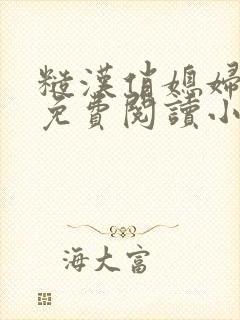 糙漢俏媳婦
免費閱讀小
海大富